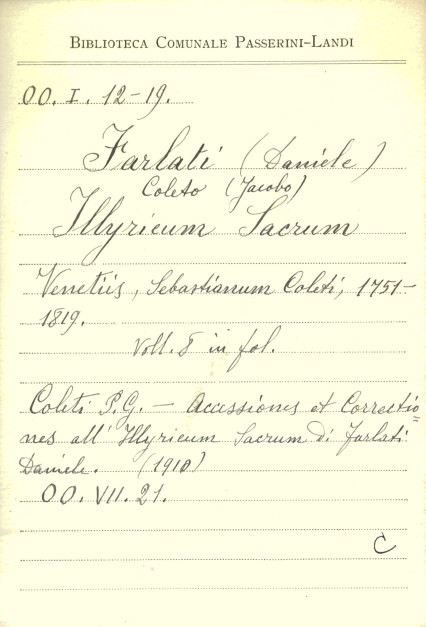 BIBLIOTECA COMUNALE PASSERINI-LANDI
OO. I. 12-19.
Farlati (Daniele)
Coleto (Jacobo)
Illyricum Sacrum
Venetiis, Sebastianum Coleti, 1751-
1819.
Voll. 8 in fol.
Coleti P.G. — Accessiones et Correctio=
nes all' Illyricum Sacrum di Farlati
Daniele. (1910)
OO. VII. 21.
C